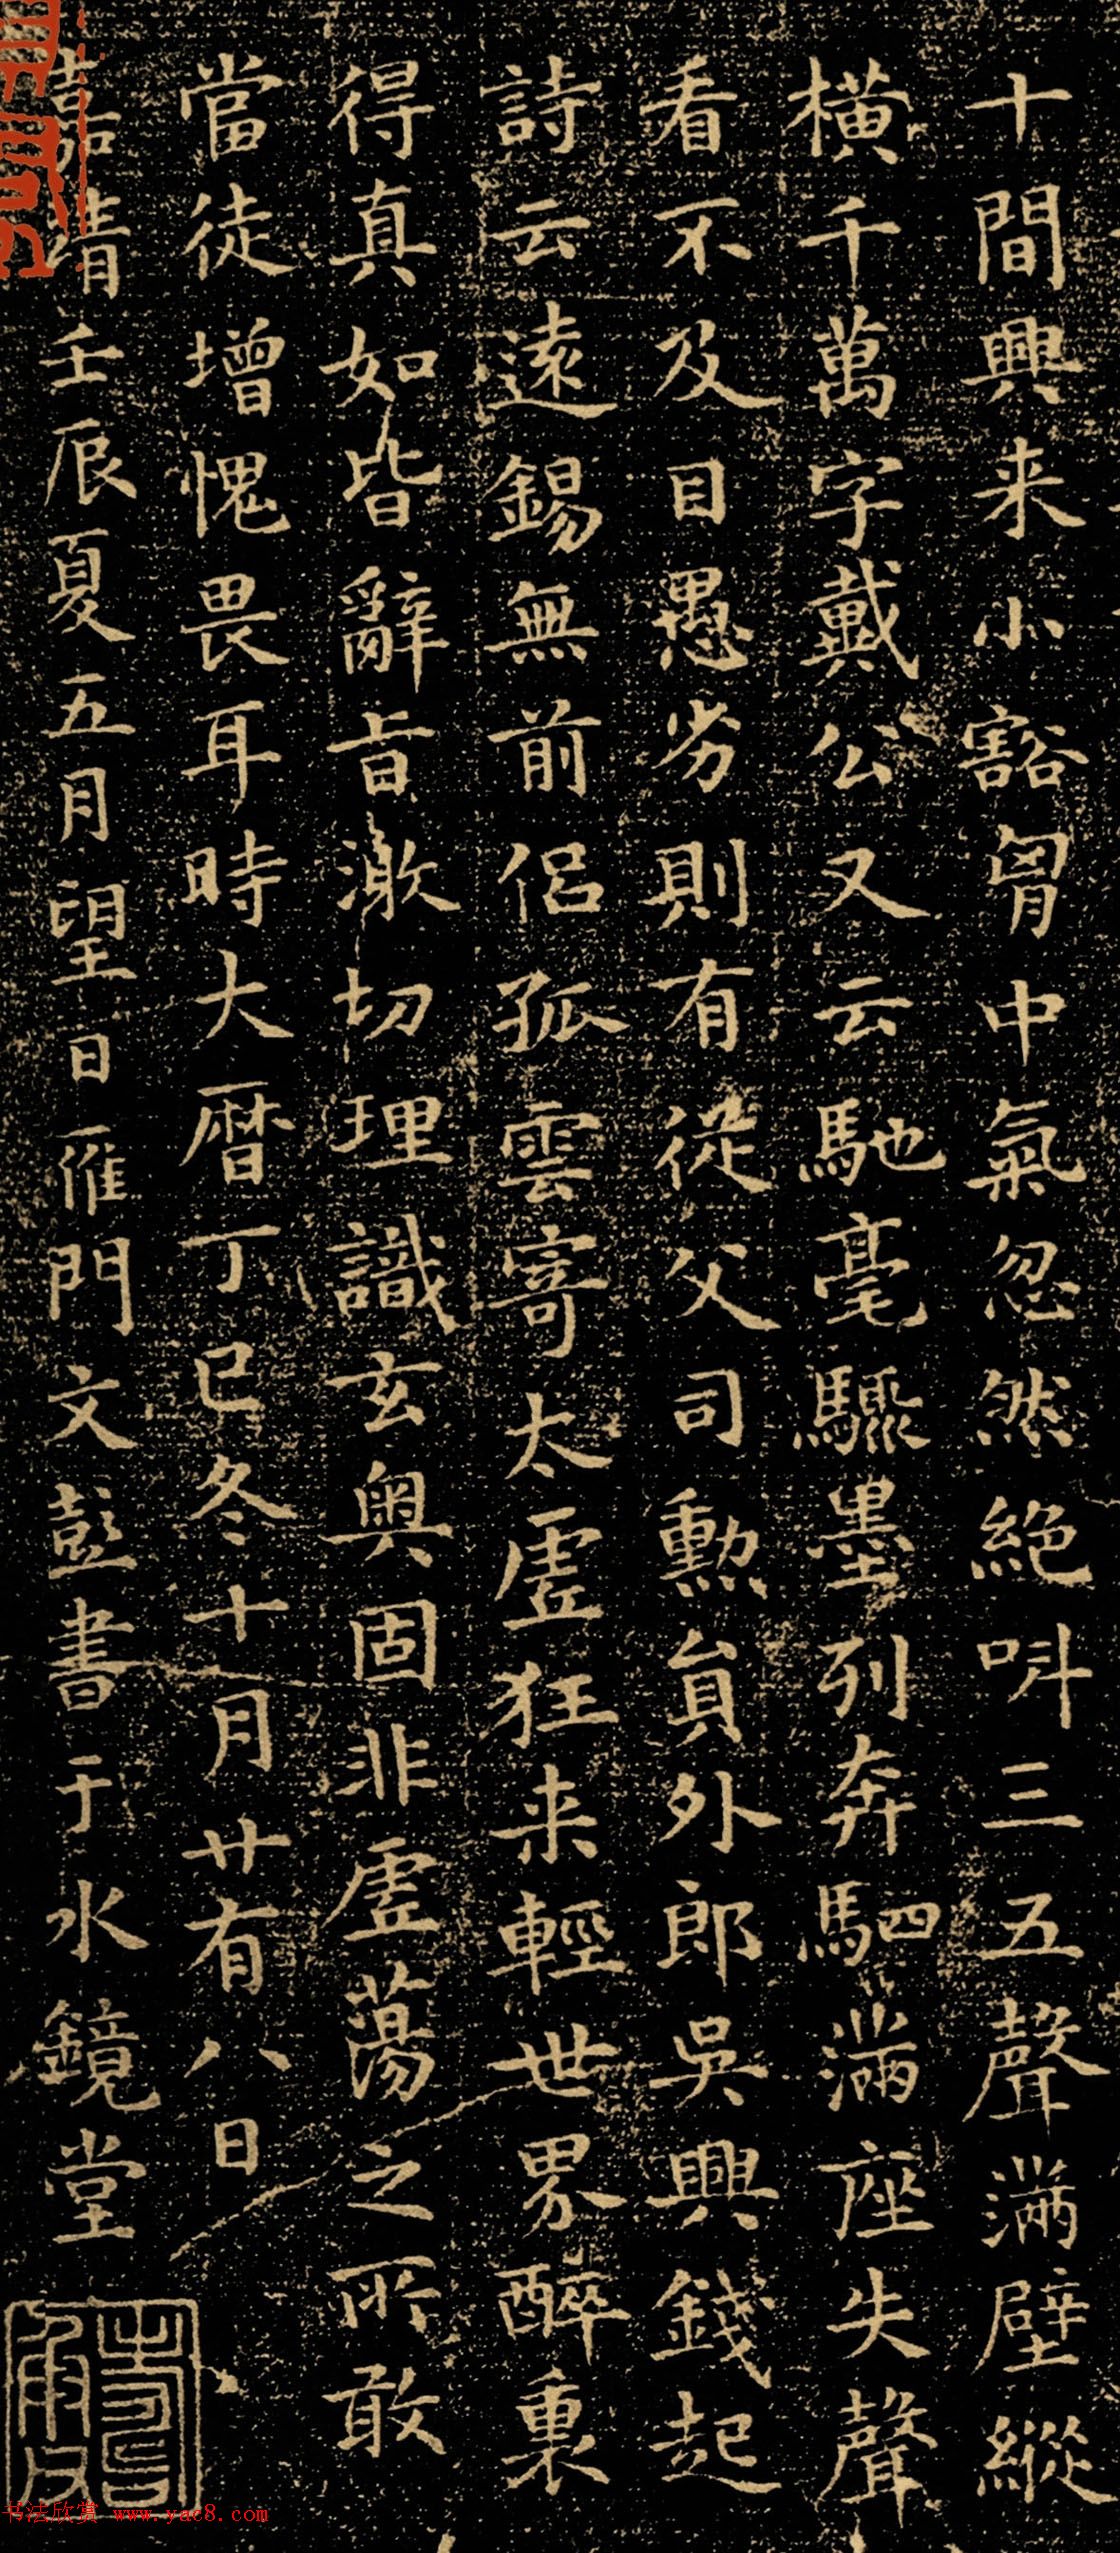 十間興来小豁胷中氣忽然絕呌三五聲滿壁縱
橫千萬字戴公又云馳毫驟墨列奔駟滿座失聲
看不及目愚劣則有從父司勳貟外郎吳興錢起
詩云遠錫無前侶孤雲寄太虛狂来輕世界醉裏
得真如皆辭旨激切理識玄奧固非虛蕩之所敢
當徒增愧畏耳時大曆丁巳冬十月廿有八日
嘉靖壬辰夏五月望日雁門文彭書于水鏡堂
书法欣赏 www.yac8.com